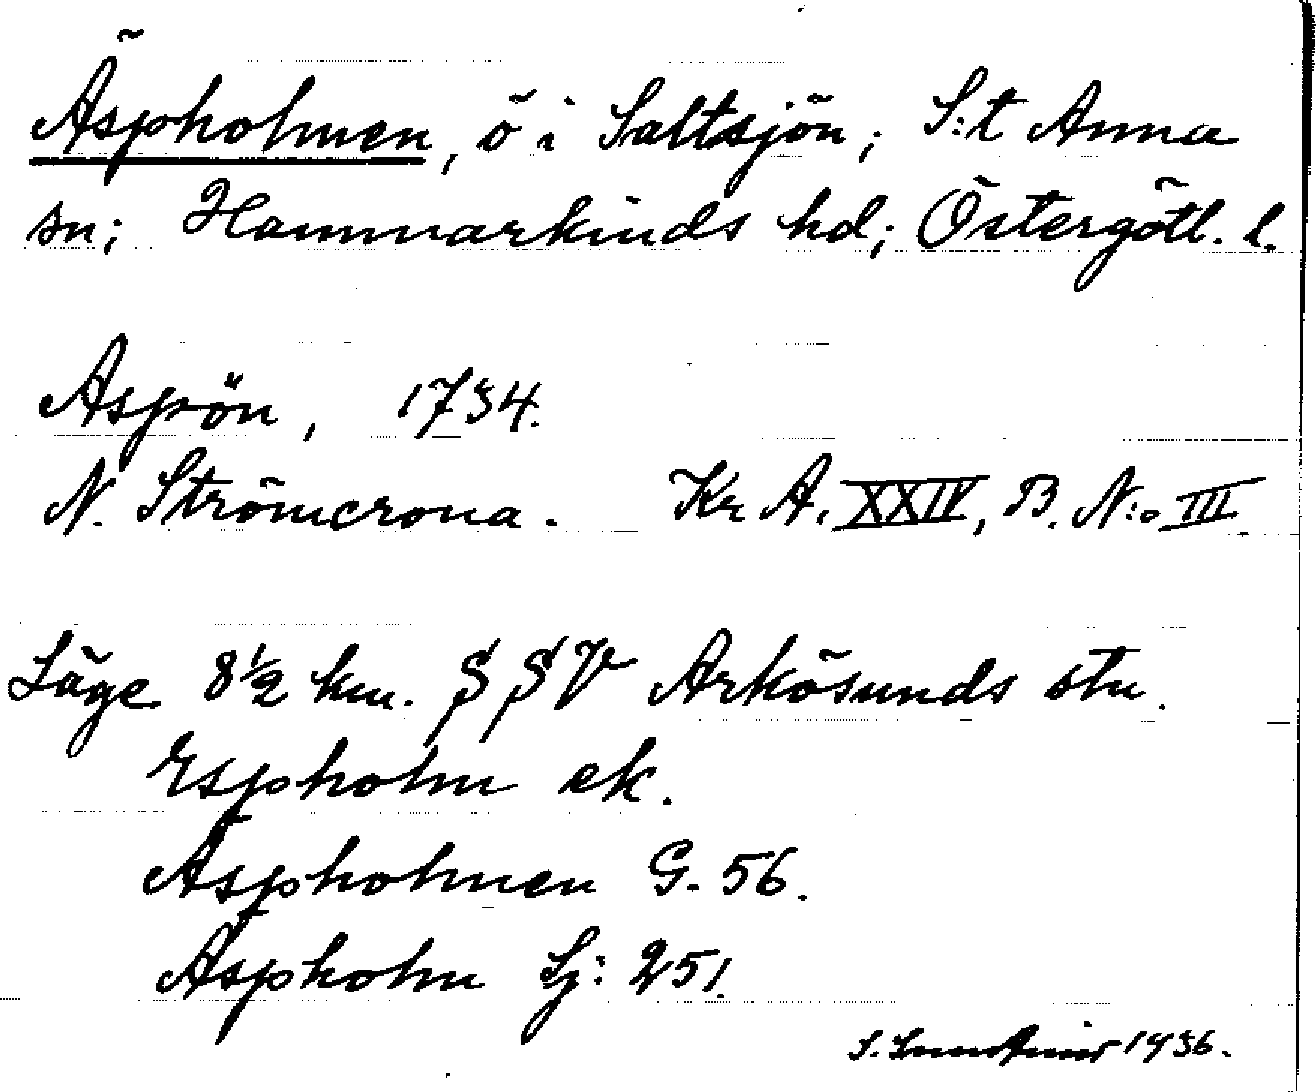 Äspholmen, ö i Saltsjön; S:t Anna
sn; Hammarkinds hd; Östergötl. l.
Aspön, 1734.
N. Strömcrona. Kr A. XXIV, B. N:o III.
Läge 8½ km. SSV Arkösunds stn.
Espholm ek.
Äspholmen G. 56.
Äspholm Sj: 251.
S. 1936.